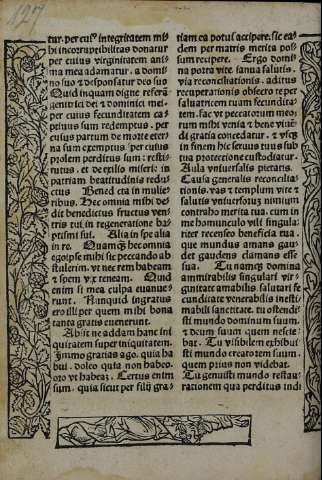 127
tur. per cuiꝰ integritatem mi
hi incorruptibilitas donatur
per cuius virginitatem ani
ma mea adamatur. a domi
no suo ⁊ desponsatur deo suo
Quid inquam digne referā
genitrici dei ⁊ domini mei.
per cuius fecunditatem ca
ptiuus sum redemptus. per
cuius partum de morte eter
na sum exemptus. per cuius
prolem perditus sum: resti
tutus. et de exilio miserie in
patriam beatitudinis redu
ctus. Bened cta in mulie
ribus. Hec omnia mihi de
dit benedictus fructus ven
tris tui in regeneratione ba
ptismi sui. Alia in spe alia
in re. Quamꝙ hec omnia
egoipse mihi sic peccando ab
stulerim. vt nec rem habeam
⁊ spem vix teneam. Quid
enim si mea culpa euanue
runt. Nunquid ingratus
ero illi per quem mihi bona
tanta gratis euenerunt.
Absit ne addam hanc ini
quitatem super iniquitatem.
Ymmo gratias ago. quia ha
bui. doleo quia non habeo
oro vt habeaz. Certus enim
sum. quia sicut per filij gra-
tiam ea potui accipere. sic ea
dem per matris merita pos
sum recipere. Ergo domi
na porta vite. ianua salutis.
via reconciliationis. aditus
recuperationis obsecro te per
saluatricem tuam fecundita
tem. fac vt peccatorum meo
rum mihi venia ⁊ bene viuē
di gratia concedatur. ⁊ vsqꝫ
in finem hic seruus tuus sub
tua protectione custodiatur.
Aula vniuersalis pietatis.
Causa generalis reconciliati
onis. vas ⁊ templum vite ⁊
salutis vniuersoruꝫ nimium
contraho merita tua. cum in
me homunculo vili singula
riter recenseo beneficia tua.
que mundus amans gau
det gaudens clamans esse
sua. Tu nāqꝫ domina
ammirabilis singulari vir
ginitate amabilis. salutari fe
cunditate venerabilis inesti
mabili sanctitate. tu ostendi
sti mundo dominum suum.
⁊ deum suum quem nescie
bat. Tu visibilem exhibui
sti mundo creatorem suum.
quem prius non videbat.
Tu genuisti mundo restau-
ratorem qua perditus indi